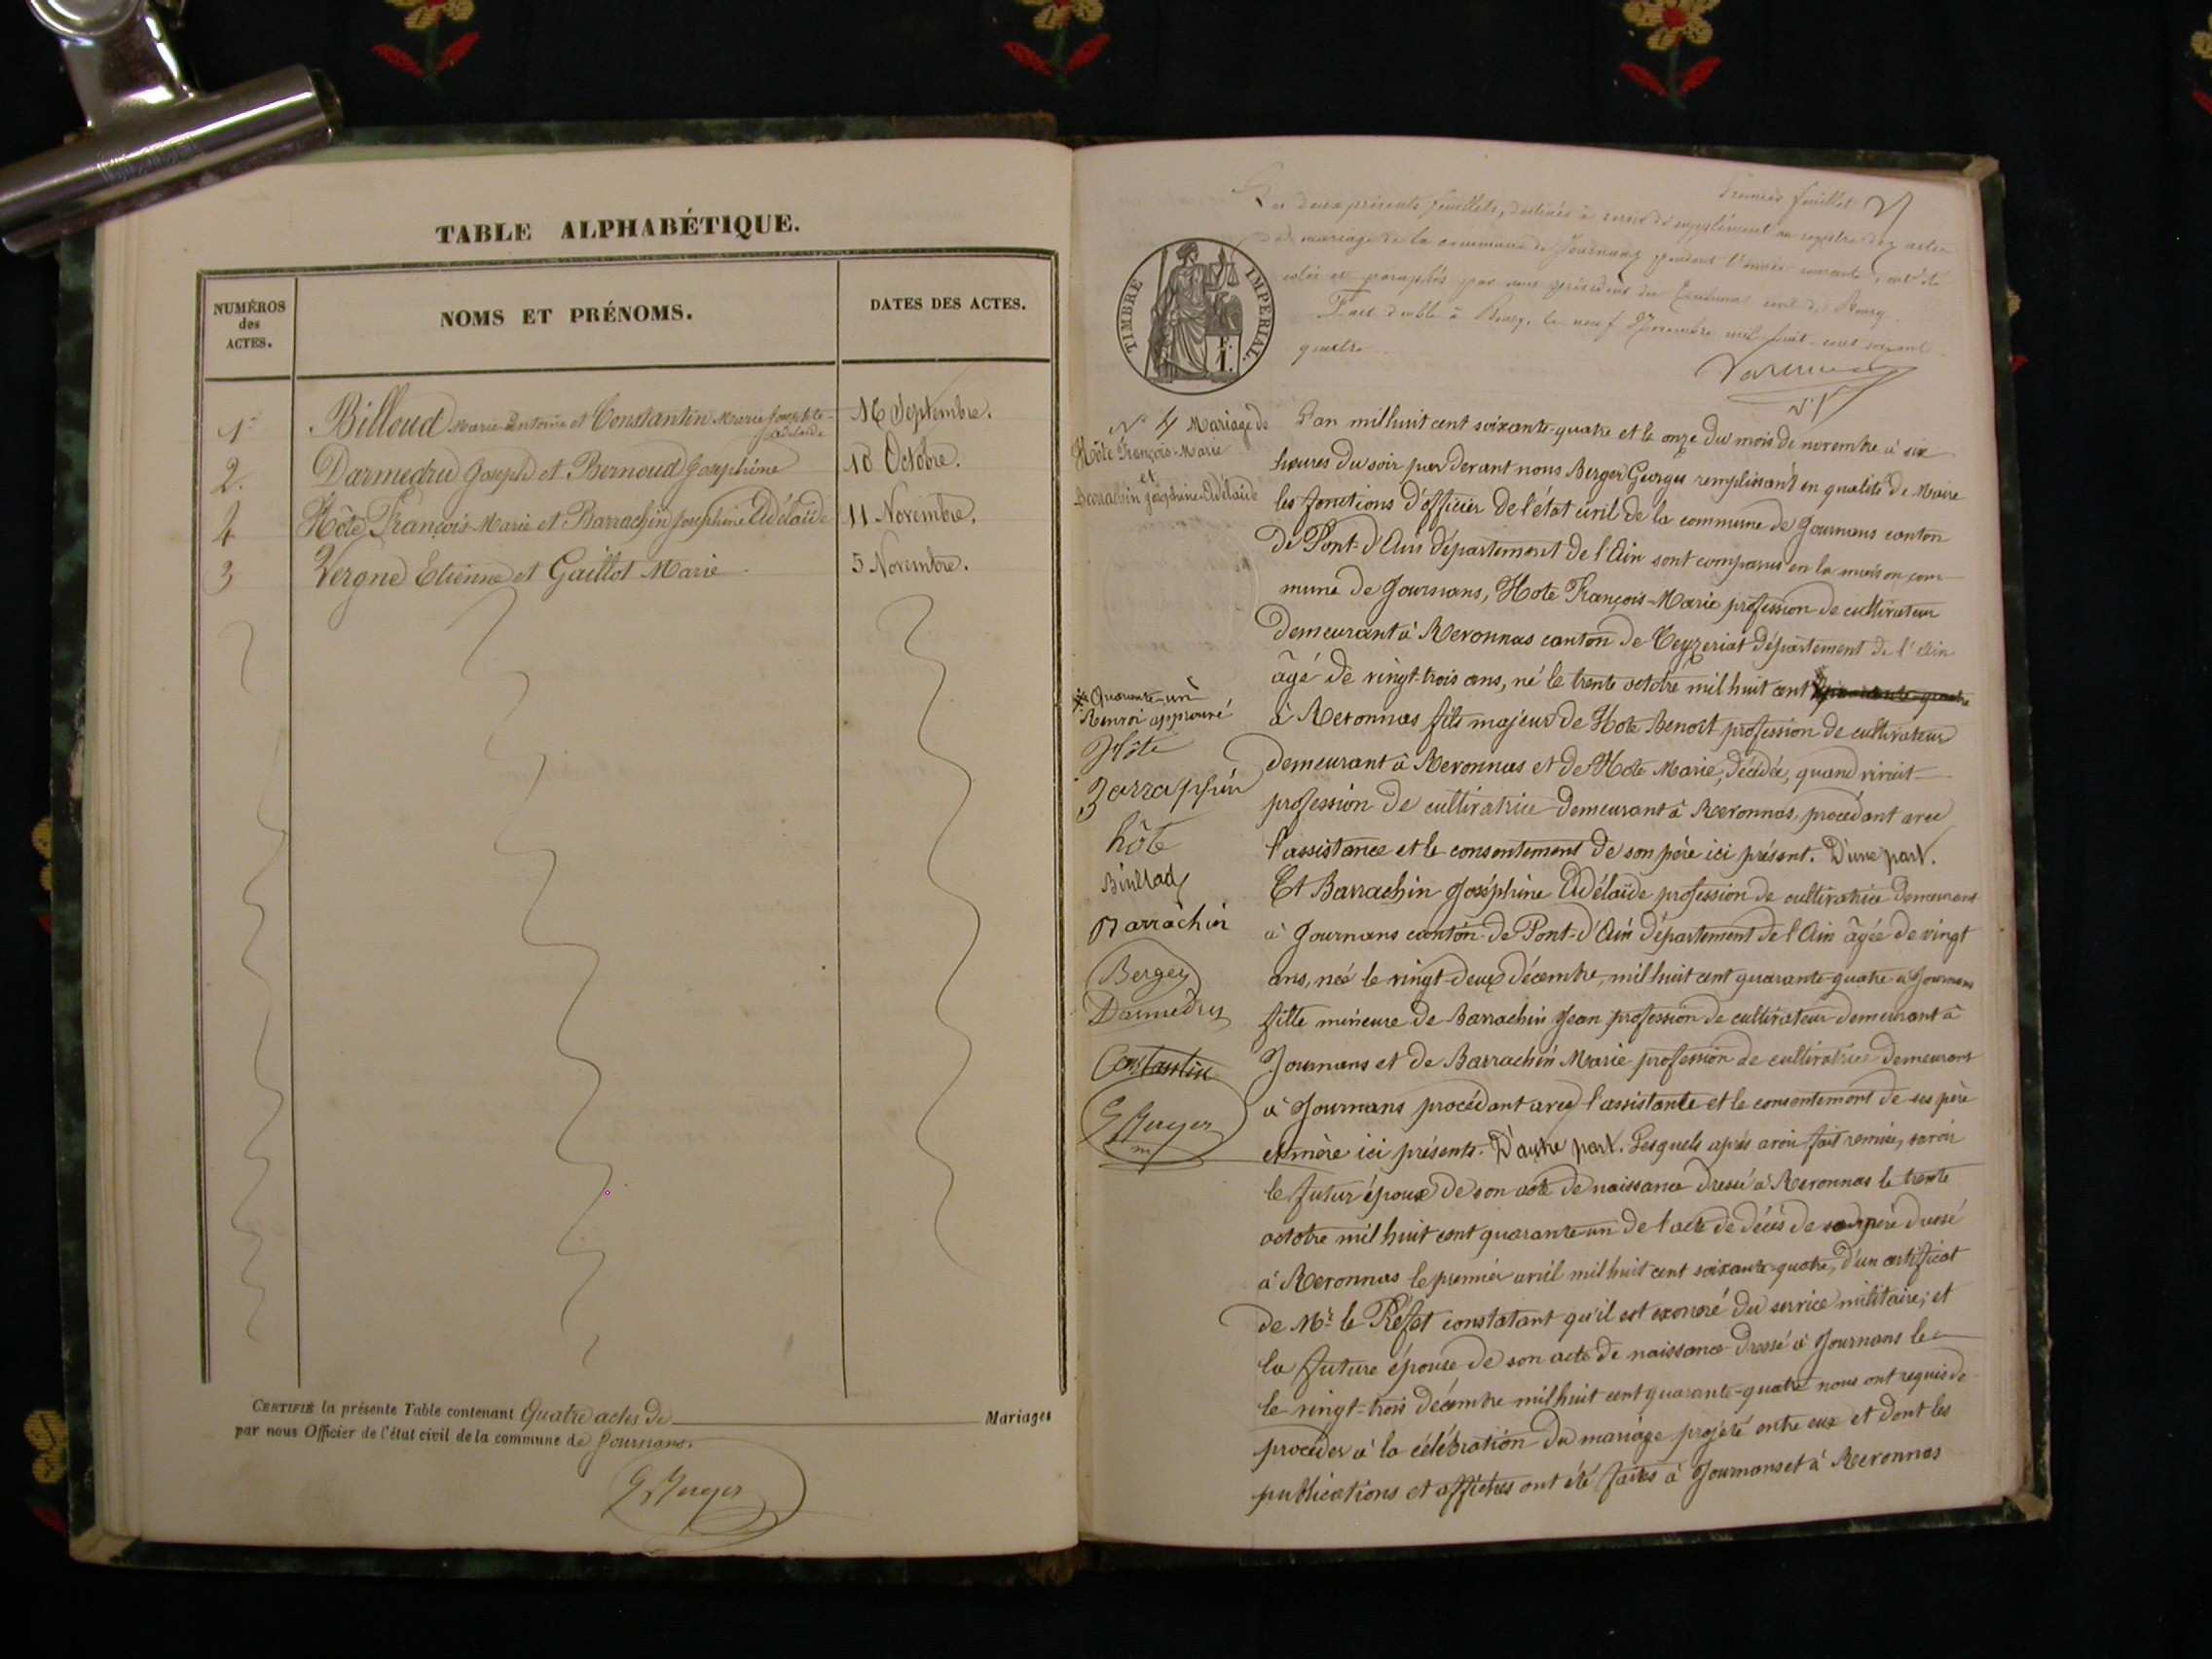 TABLE ALPHABÉTIQUE.
NUMÉROS
des
ACTES.
NOMS ET PRÉNOMS.
DATES DES ACTES.
1° Billoud Marie-Antoine et Constantin Marie Josephte-Adelaide 16 Septembre.
2. Darmedru Joseph et Bernoud Josephine 10 Octobre.
4 Hôte François-Marie et Barrachin Josephine Adélaïde 11 Novembre.
3 Vergne Etienne et Gaillot Marie 5 Novembre.
CERTIFIÉ la présente Table contenant Quatre actes de Mariages
par nous Officier de l'état civil de la commune de Journans.
G Berger
Premier feuillet
Les deux présents feuillets, destinés à servir de supplément au registre des actes
de mariage de la commune de Journans pendant l'année courante, ont été
cotés et paraphés par nous président du Tribunal civil de Bourg.
Fait double à Bourg, le neuf Novembre mil huit cent soixante
quatre.
TIMBRE IMPÉRIAL.
N° 4 Mariage de
Hôte François-Marie
et
Barrachin Joséphine-Adélaïde
L'an mil huit cent soixante-quatre et le onze du mois de novembre à six
heures du soir par devant nous Berger Georges remplissant en qualité de Maire
les fonctions d'officier de l'état civil de la commune de Journans canton
de Pont-d'Ain département de l'Ain sont comparus en la maison com-
mune de Journans, Hote François-Marie profession de cultivateur
demeurant à Reronnas canton de Ceyzeriat département de l'Ain
âgé de vingt-trois ans, né le trente octobre mil huit cent
à Reronnas fils majeur de Hote Benoit profession de cultivateur
demeurant à Reronnas et de Hote Marie, décédée, quand vivait
profession de cultivatrice demeurant à Reronnas, procédant avec
l'assistance et le consentement de son père ici présent. D'une part.
Et Barrachin Joséphine Adélaïde profession de cultivatrice demeurant
à Journans canton de Pont-d'Ain département de l'Ain âgée de vingt
ans, née le vingt-deux décembre, mil huit cent quarante-quatre à Journans
fille mineure de Barrachin Jean profession de cultivateur demeurant à
Journans et de Barrachin Marie profession de cultivatrice demeurant
à Journans procédant avec l'assistante et le consentement de ses père
et mère ici présents. D'autre part. Lesquels après avoir fait remise, savoir
le futur époux de son acte de naissance dressé à Reronnas le trente
octobre mil huit cent quarante un de l'acte de décès de père dressé
à Reronnas le premier avril mil huit cent soixante-quatre, d'un certificat
de Mr. le Préfet constatant qu'il est exonéré du service militaire; et
la future épouse de son acte de naissance dressé à Journans le
le vingt-trois décembre mil huit cent quarante-quatre nous ont requis de
procéder à la célébration du mariage projeté entre eux et dont les
publications et affiches ont été faites à Journans et à Reronnas
Quarante-un
Renvoi approuvé
Hôte
Barrachin
hôte
Barrachin
Berger
Darmedru
Constantin
G Berger
m